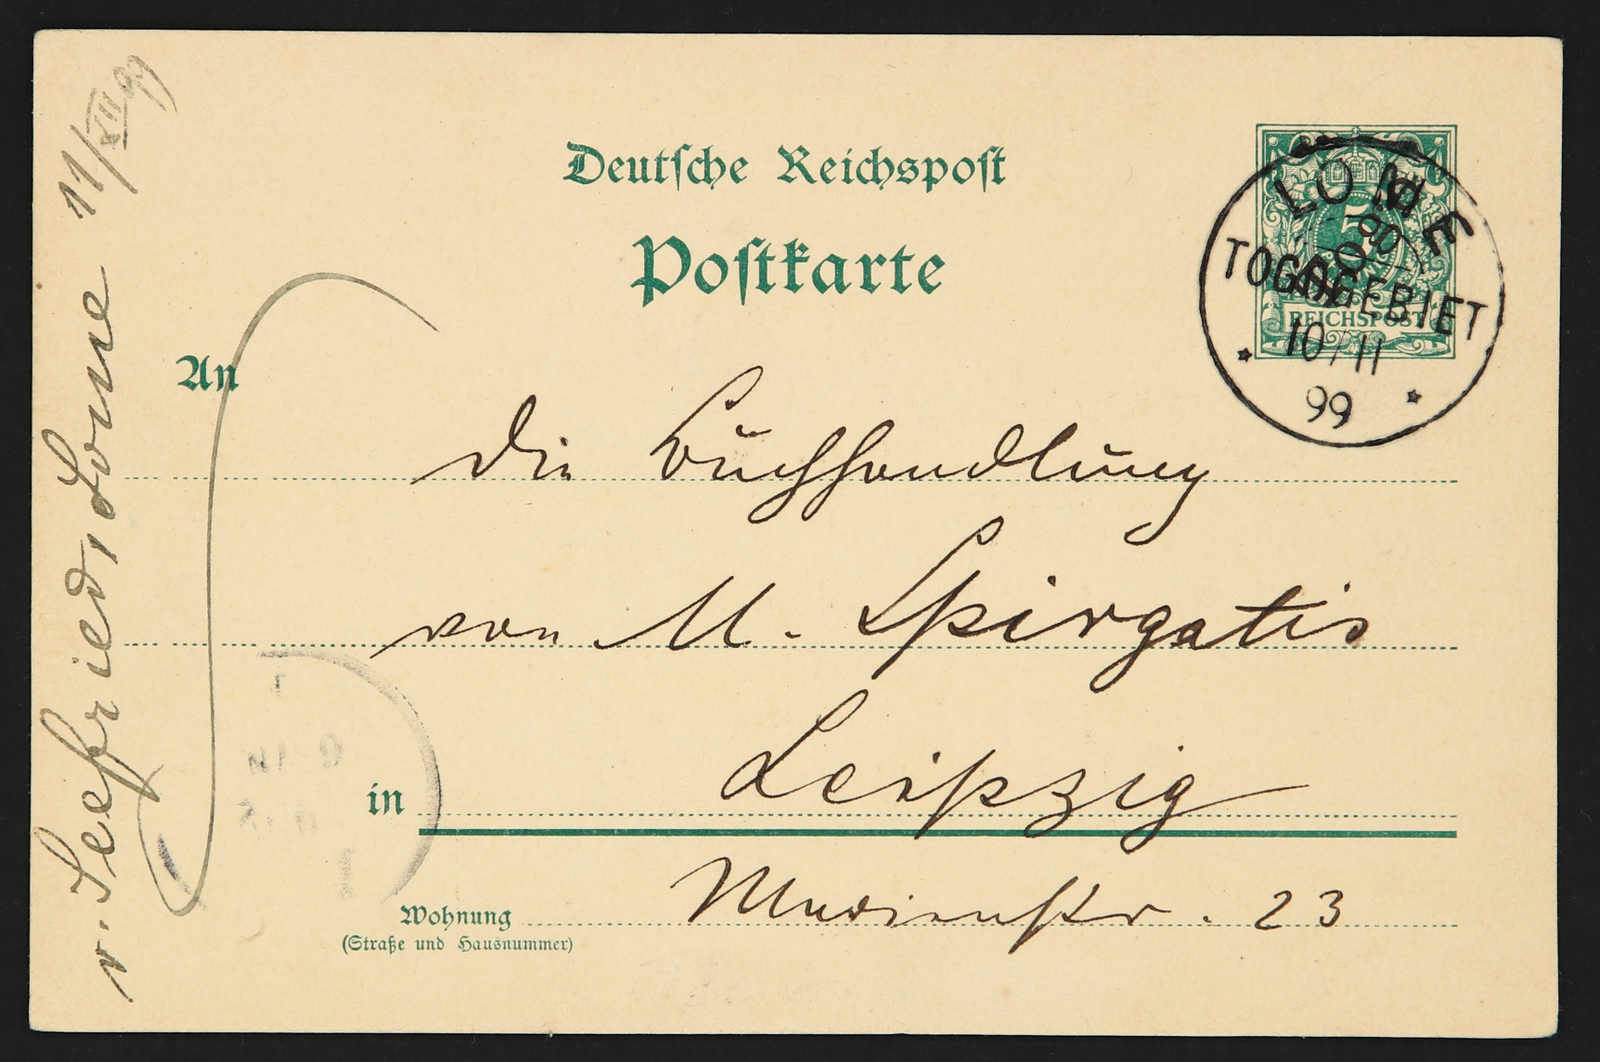 Deutsche Reichspost
Postkarte
5
REICHSPOST
LOME
TOGOGEBIET
10/11
99
An
die Buchhandlung
von M. Spirgatis
in Leipzig
Wohnung Marienstr. 23
(Straße und Hausnummer)
v. Seefried, Lome 11/XII 99